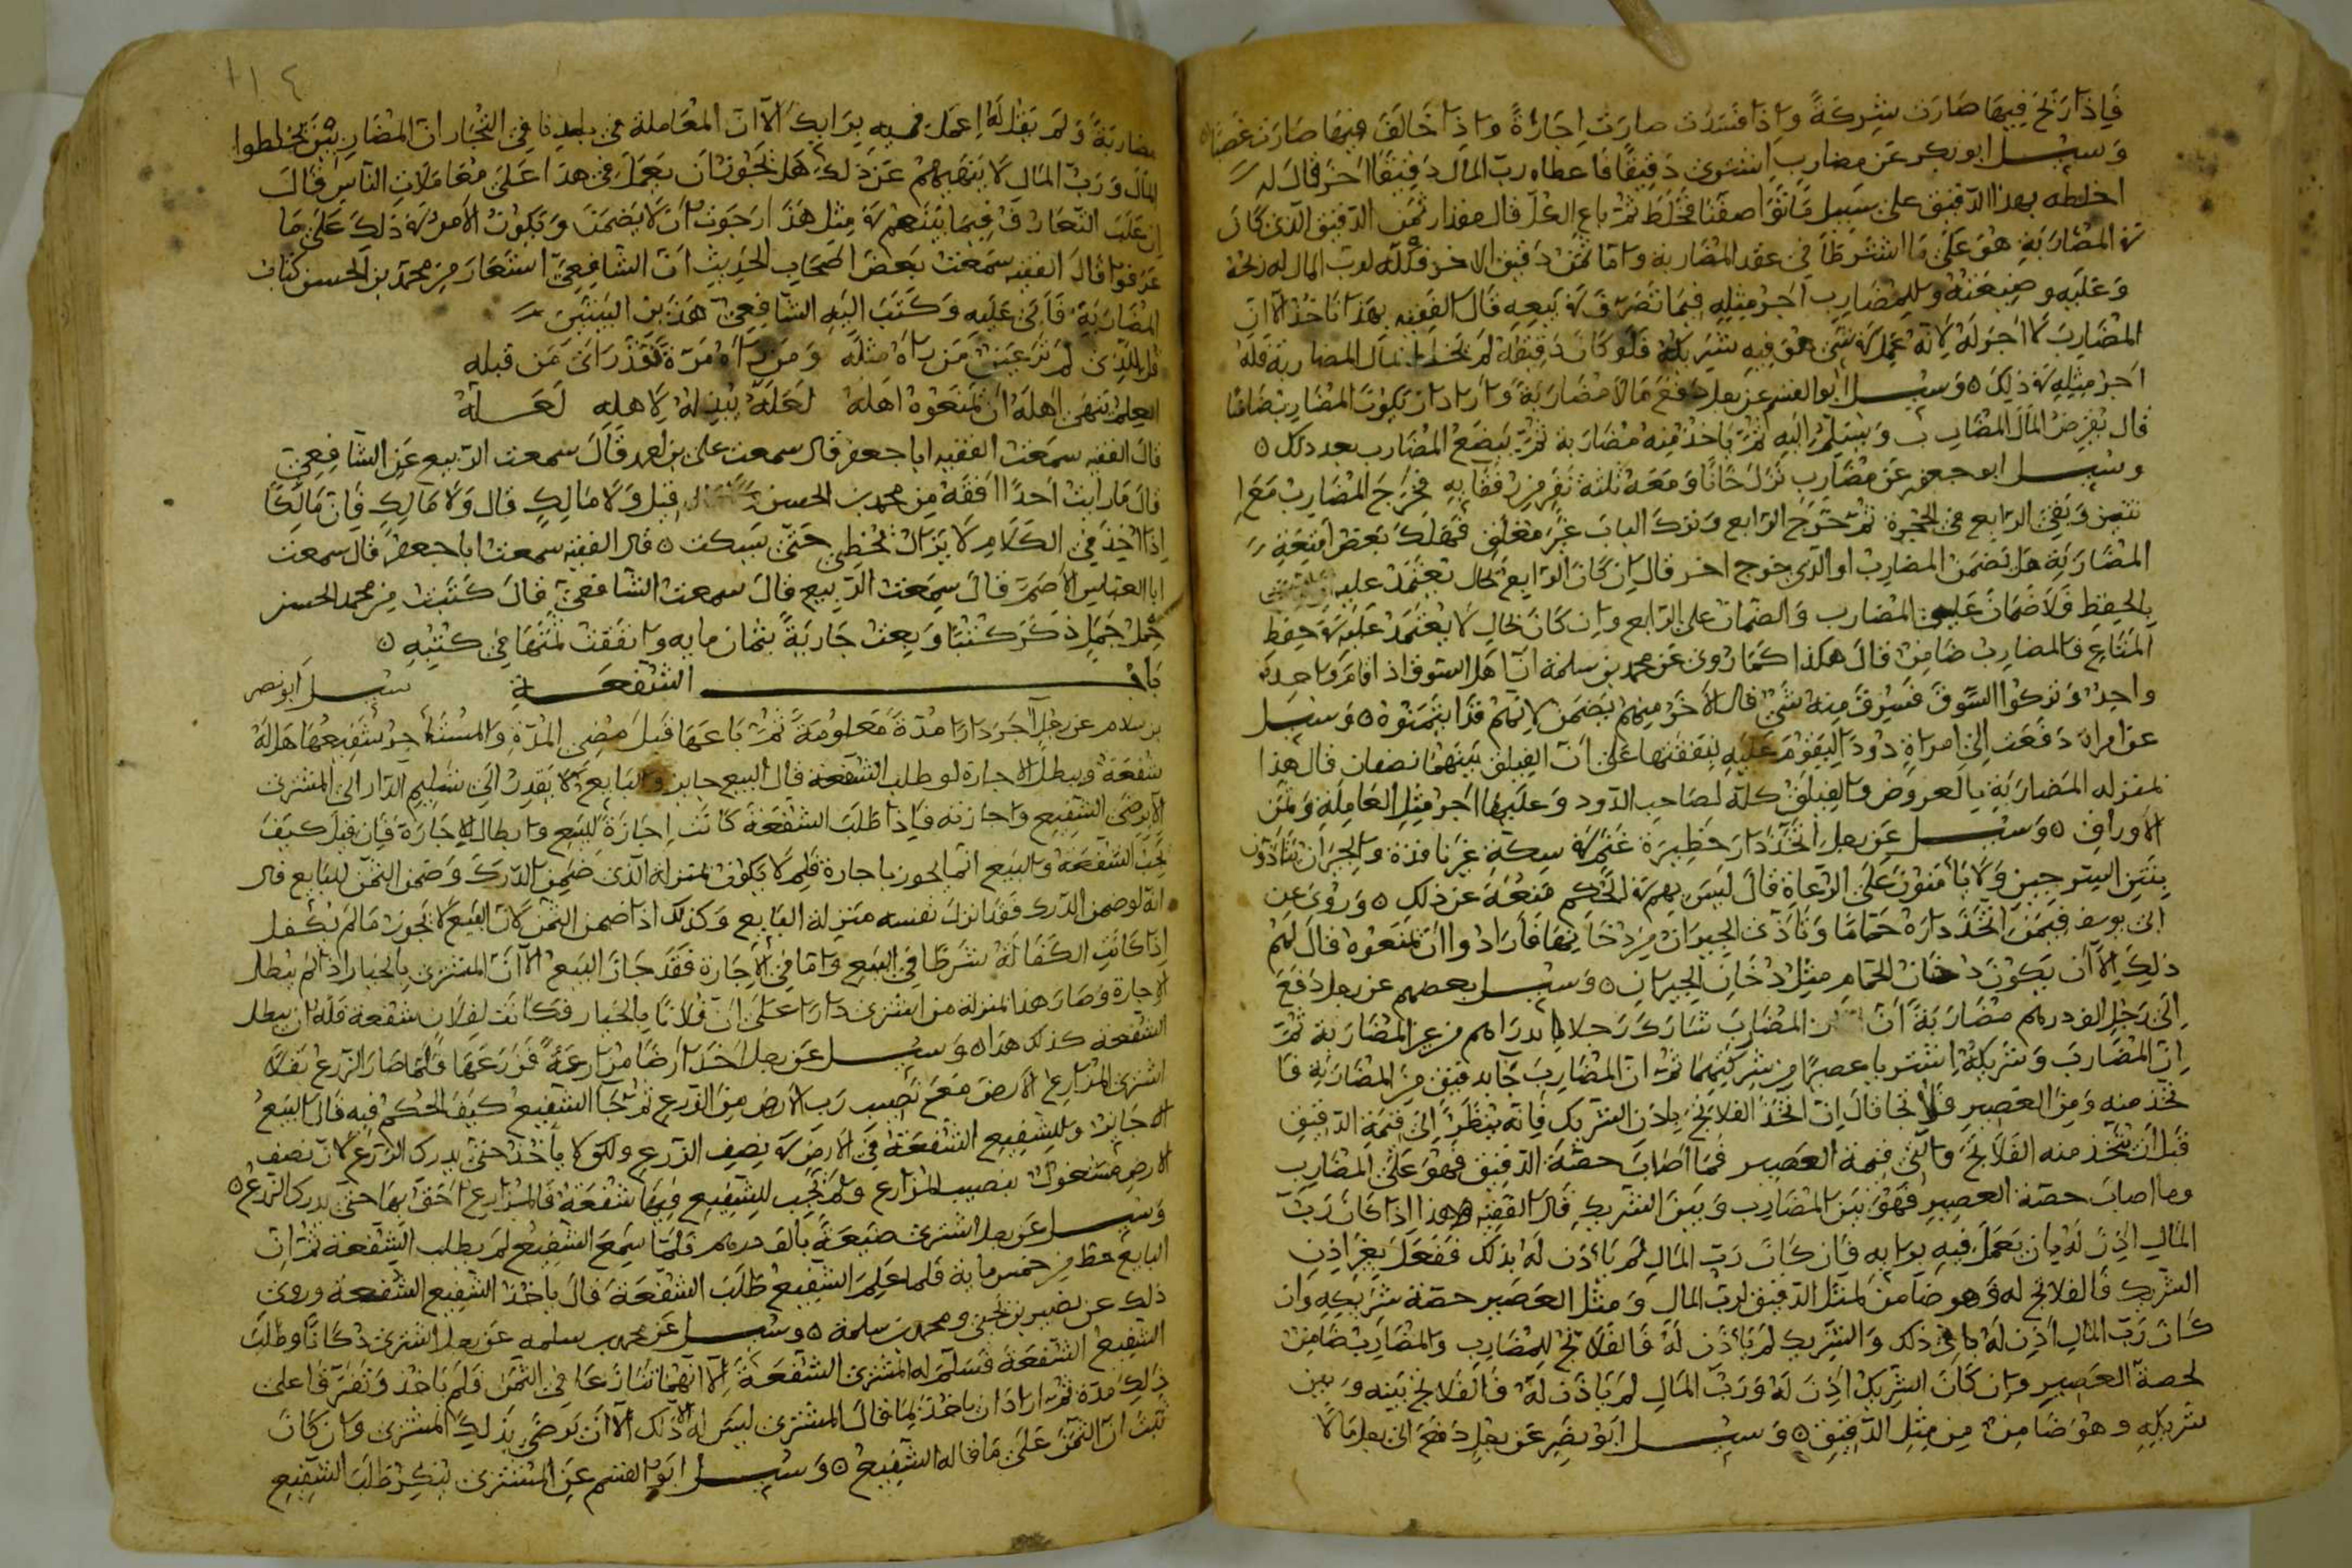 فاذا ربح فيها صارت شركة واذا فسدت صارت اجارة واذا خالف فيها صارت غصبا
وسئل ابو بكر عن مضارب اشترى دقيقا فاعطاه رب المال دقيقا اخر قال له
اخلطه بهذا الدقيق على سبيل ما تواصفنا فخلط ثم باع الكل قال مقدار ثمن الدقيق الذي كان
في المضاربة هو على ما اشترطا في عقد المضاربة واما ثمن دقيق الاخر فكله لرب المال له ربحه
وعليه وضيعته وللمضارب اجر مثله فيما تصرف في بيعه قال الفقيه بهذا ناخذ الا ان
المضارب لا اجر له لانه عمل في شي هو فيه شريك فلو كان دقيقه لم يخلط بمال المضاربة فله
اجر مثله في ذلك وسئل ابو القسم عن رجل دفع مالا مضاربة واراد ان يكون المضارب ضامنا
قال يقرض المال المضارب ويسلم اليه ثم ياخذ منه مضاربة ثم يبضع المضارب بعد ذلك
وسئل ابو جعفر عن مضارب نزل خانا ومعه ثلثة نفر من رفقايه فخرج المضارب مع
اثنين وبقي الرابع في الحجرة ثم خرج الرابع وترك الباب غير مغلق فهلك بعض امتعة
المضاربة هل يضمن المضارب او الذي خرج اخر قال ان كان الرابع بحال يعتمد عليه
بالحفظ فلا ضمان على المضارب والضمان على الرابع وان كان بحال لا يعتمد عليه في حفظ
المتاع فالمضارب ضامن قال هكذا كما روي عن محمد بن سلمة ان اهل السوق اذا قام واحد بعد
واحد وتركوا السوق فسرق منه شي قال الاخر منهم يضمن لانهم قد ايتمنوه وسئل
عن امراة دفعت الى امراة دود اليقوم عليه بنفقتها على ان الفيلق بينهما نصفان قال هذا
بمنزلة المضاربة بالعروض والفيلق كله لصاحب الدود وعليها اجر مثل العاملة وثمن
الاوراق وسئل عن رجل اتخذ دار حظيرة غنم في سكة غير نافذة والجيران يتأذون
بنتن السرجين ولا يأمنون على الرعاة قال ليس لهم في الحكم منعه عن ذلك وروي عن
ابي يوسف فيمن اتخذ داره حماما وتأذى الجيران من دخانها فارادوا ان يمنعوه قال لهم
ذلك الا ان يكون دخان الحمام مثل دخان الجيران وسئل بعضهم عن رجل دفع
الى رجل الف درهم مضاربة ان المضارب شارك رجلا بدراهم من غير المضاربة ثم
ان المضارب وشريكه اشتريا عصيرا من شركتهما ثم ان المضارب جا بدقيق من المضاربة فا
تخذ منه ومن العصير فلاتجا قال ان اتخذ الفلاتج باذن الشريك فانه ينظر الى قيمة الدقيق
قبل ان يتخذ منه الفلاتج والى قيمة العصير فما اصاب حصة الدقيق فهو على المضارب
وما اصاب حصة العصير فهو بين المضارب وبين الشريك قال الفقيه وهذا اذا كان رب
المال اذن له بان يعمل فيه برايه فان كان رب المال لم يأذن له بذلك ففعل بغير اذن
الشريك فالفلاتج له وهو ضامن لمثل الدقيق لرب المال ومثل العصير حصة شريكه وان
كان رب المال اذن له في ذلك والشريك لم يأذن له فالفلاتج للمضارب والمضارب ضامن
لحصة العصير وان كان الشريك اذن له ورب المال لم يأذن له فالفلاتج بينه وبين
شريكه وهو ضامن من مثل الدقيق وسئل ابو نصر عن رجل دفع الى رجل مالا
١١٤
مضاربة ولم يقل له اعمل فيه برايك الا ان المعاملة في بلدنا في التجار ان المضاربين يخلطوا
المال ورب المال لا ينهيهم عن ذلك هل يجوز ان يعمل في هذا على معاملات الناس قال
ان غلب التعارف فيما بينهم في مثل هذا رجوت ان لا يضمن ويكون الامر في ذلك على ما
عرفوا قال الفقيه سمعت بعض اصحاب الحديث ان الشافعي استعار من محمد بن الحسن كتاب
المضاربة فابى عليه وكتب اليه الشافعي هذين البيتين
قل للذي لم تر عين من راه مثله ومن راه مرة فقد راى من قبله
العلم ينهى اهله ان يمنعوه اهله لعله يبذله لاهله لعله
قال الفقيه سمعت الفقيه ابا جعفر قال سمعت علي بن احمد قال سمعت الربيع عن الشافعي
قال ما رايت احدا افقه من محمد بن الحسن قيل ولا مالك قال ولا مالك فان مالكا
اذا اخذ في الكلام لا يزال يخطي حتى يسكت قال الفقيه سمعت ابا جعفر قال سمعت
ابا العباس الاصم قال سمعت الربيع قال سمعت الشافعي قال كتبت من محمد الحسن
حمل جمل ذكر كتبا وبعت جارية بثمان مايه وانفقت ثمنها في كتبه
باب الشفعة سئل ابو نصر
بن سلام عن رجل اجر دارا مدة معلومة ثم باعها قبل مضي المدة والمستأجر شفيعها هل له
شفعة ويبطل الاجارة لو طلب الشفعة قال البيع جايز والبايع لا يقدر الى تسليم الدار الى المشتري
الا برضى الشفيع واجازته فاذا طلب الشفعة كانت اجازة للبيع وابطال الاجارة فان قيل كيف
تجب الشفعة والبيع انما يجوز باجازة فلم لا يكون بمنزلة الذي ضمن الدرك وضمن الثمن للبايع قال
انه لو ضمن الدرك فقد انزل نفسه منزلة البايع وكذلك اذا ضمن الثمن لان البيع لا يجوز ما لم يكفل
اذا كانت الكفالة شرطا في البيع واما في الاجارة فقد جاز البيع الا ان المشتري بالخيار اذا لم يبطل
الاجارة وصار هذا بمنزلة من اشترى دارا على ان فلانا بالخيار فكانت لفلان شفعة فله ان يبطل
الشفعة كذلك هذا وسئل عن رجل اخذ ارضا مزارعة فزرعها فلما صار الزرع بقلا
اشترى المزارع الارض مع نصيب رب الارض من الزرع ثم جا الشفيع كيف الحكم فيه قال البيع
جايز وللشفيع الشفعة في الارض في نصف الزرع ولكن لا يأخذ حتى يدرك الزرع لان نصف
الارض مشغول بنصيب المزارع ولم يجب للشفيع فيها شفعة فالمزارع احق بها حتى يدرك الزرع
وسئل عن رجل اشترى ضيعة بالف درهم فلما سمع الشفيع لم يطلب الشفعة ثم ان
البايع حط من خمس ماية فلما علم الشفيع طلب الشفعة قال ياخذ الشفيع الشفعة وروي
ذلك عن نصير بن يحيى ومحمد بن سلمة وسئل عن محمد بن سلمه عن رجل اشترى دكانا وطلب
الشفيع الشفعة فسلم له المشتري الشفعة الا انهما تنازعا في الثمن فلم يأخذ وتفرقا على
ذلك مدة ثم اراد ان ياخذ بما قال المشتري ليس له ذلك الا ان يرضى بذلك المشتري وان كان
ثبت ان الثمن على ما قاله الشفيع وسئل ابو القسم عن المشتري ينكر طلب الشفيع